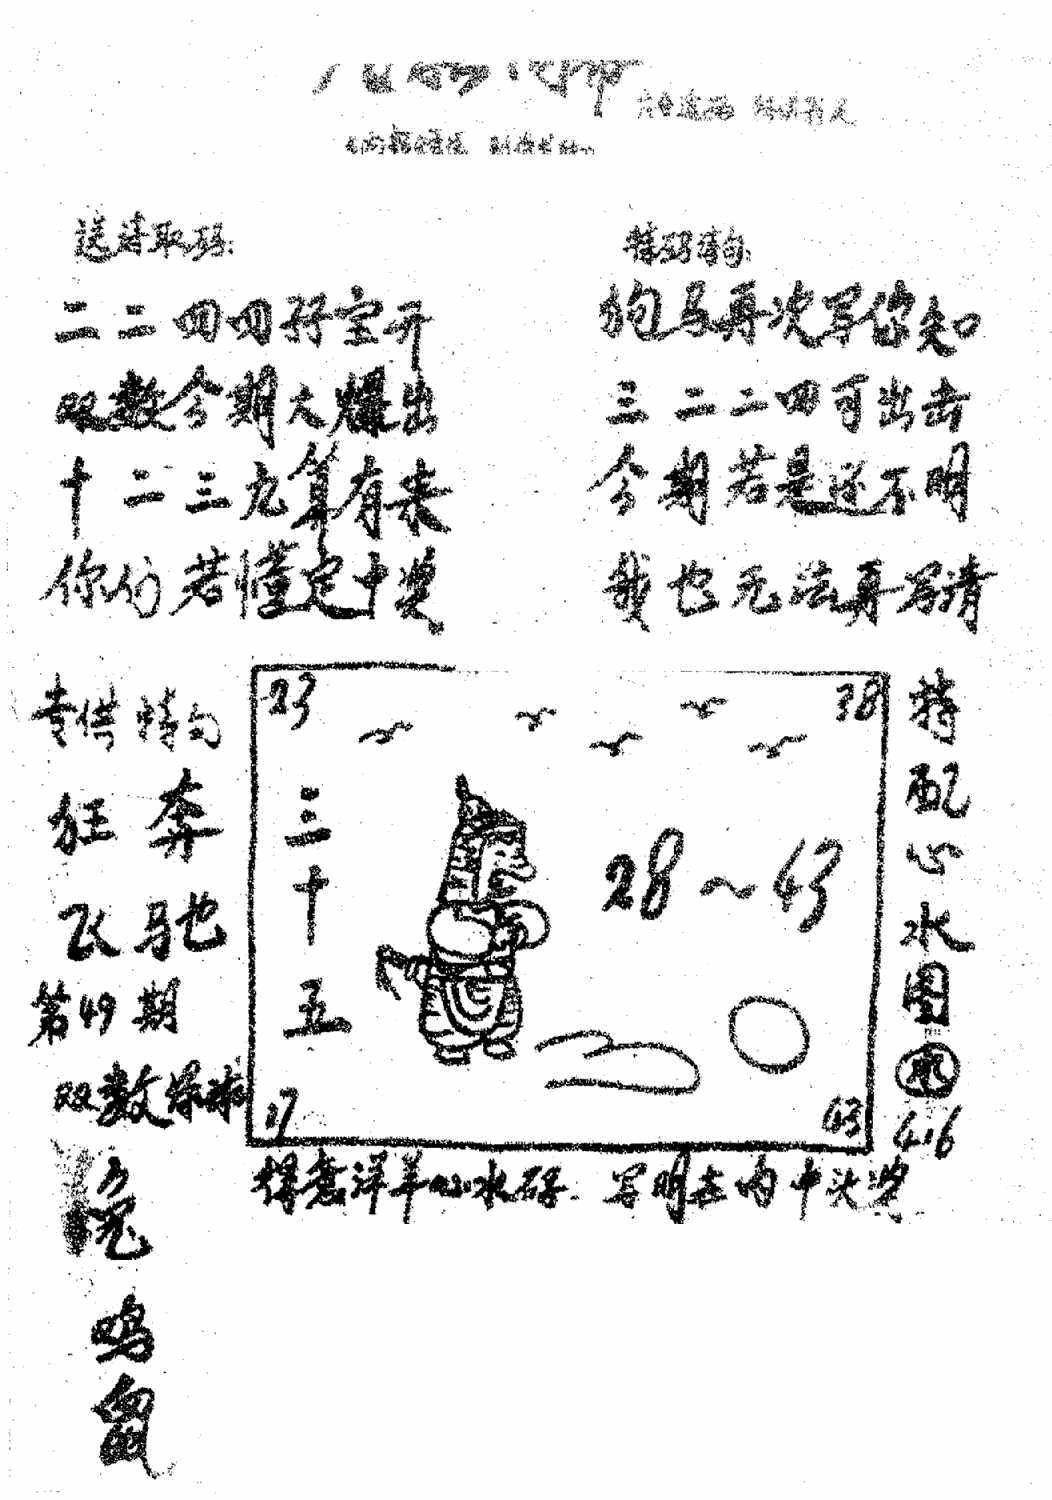 送诗取码:
二二四四孖宝开
双数今期大爆出
十二三九算有来
你们若懂定中奖
特码诗句:
狗马再次写你知
三二二四可出击
今期若是还不明
我也无法再写清
专供特句
狂奔
飞驰
第49期
双数
兔
鸡
鼠
23
38
三十五
28~43
17
43
特配心水图
4.16
得意洋羊心水码 写明在内中头奖